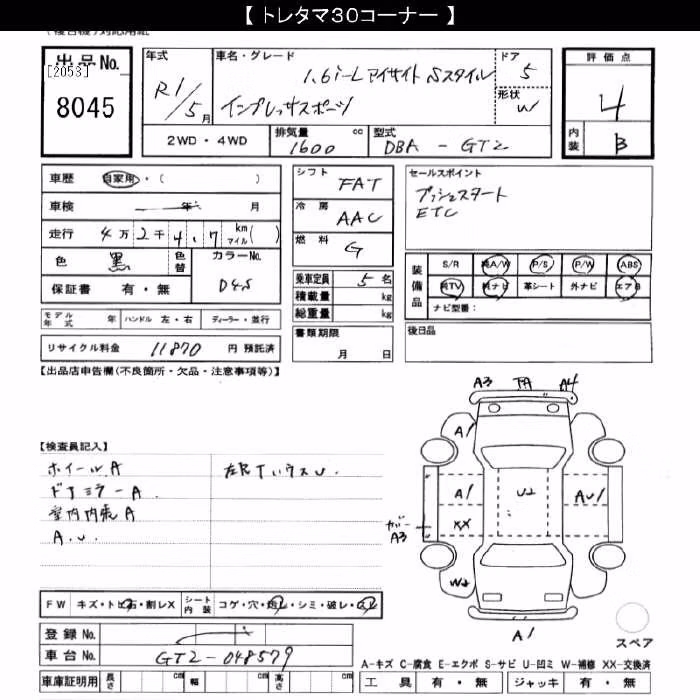 【 トレタマ30コーナー 】
出品No.
[2053]
8045
年式
R1/5月
車名・グレード
1.6i-L アイサイト Sスタイル
インプレッサスポーツ
ドア
5
形状
W
評価点
4
内装
B
2WD・4WD
排気量
1600 cc
型式
DBA - GT2
車歴 自家用・( )
車検 年 月
走行 4万2千4,7 km マイル( )
色 黒 色替
カラーNo.
D4S
保証書 有・無
シフト FAT
冷房 AAC
燃料 G
乗車定員 5名
積載量 kg
総重量 kg
セールスポイント
プッシュスタート
ETC
装備品
S/R 純A/W P/S P/W ABS
純TV 純ナビ 革シート 外ナビ エアB
ナビ型番:
モデル年式 年 ハンドル 左・右 ディーラー・並行
リサイクル料金 11870 円 預託済
書類期限
月 日
後日品
【出品店申告欄(不良箇所・欠品・注意事項等)】
A3 A4
A1
【検査員記入】
ホイールA
ドアミラーA
室内内張A
A.U.
A1 U2 AU1
XX
カバー A3
W2
A1
FW キズ・トビ石・割レX シート内装 コゲ・穴・スレ・シミ・破レ・
登録No.
車台No. GT2-048579
スペア
A-キズ C-腐食 E-エクボ S-サビ U-凹ミ W-補修 XX-交換済
車庫証明用 長さ cm 幅 cm 高さ cm
工具 有・無 ジャッキ 有・無